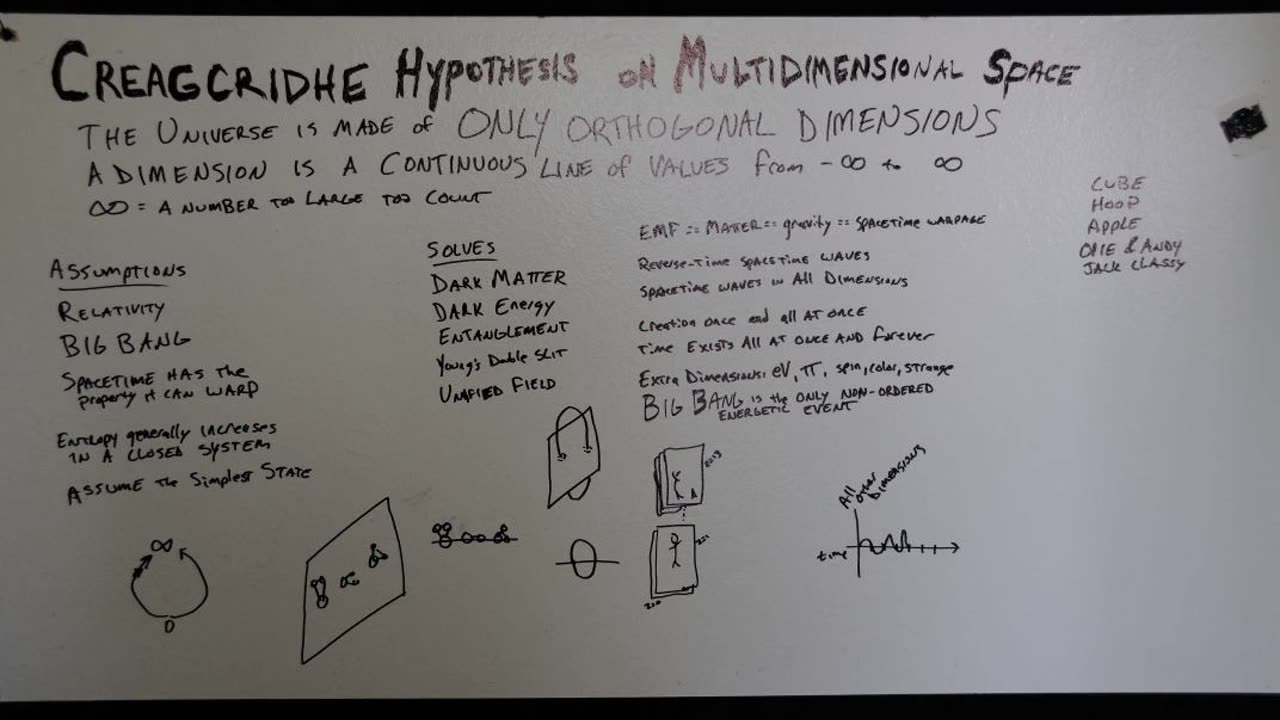 CREAGCRIDHE HYPOTHESIS ON MULTIDIMENSIONAL SPACE
THE UNIVERSE IS MADE OF ONLY ORTHOGONAL DIMENSIONS
A DIMENSION IS A CONTINUOUS LINE OF VALUES FROM -∞ to ∞
∞ = A NUMBER TOO LARGE TOO COUNT
ASSUMPTIONS
RELATIVITY
BIG BANG
SPACETIME HAS the
property it CAN WARP
Entropy generally increases
IN A CLOSED SYSTEM
ASSUME the Simplest STATE
SOLVES
DARK MATTER
DARK Energy
ENTANGLEMENT
Young's Double SLIT
UNIFIED FIELD
EMF :: MATTER :: gravity :: SPACETIME WARPAGE
Reverse-Time SPACETIME WAVES
SPACETIME WAVES in All Dimensions
Creation ONCE and all AT ONCE
Time Exists All AT ONCE AND forever
Extra Dimensions: eV, π, spin, color, strange
BIG BANG is the ONLY NON-ORDERED
ENERGETIC EVENT
CUBE
HOOP
APPLE
& ANDY
JACK CLASSY
∞
0
All other Dimensions
time